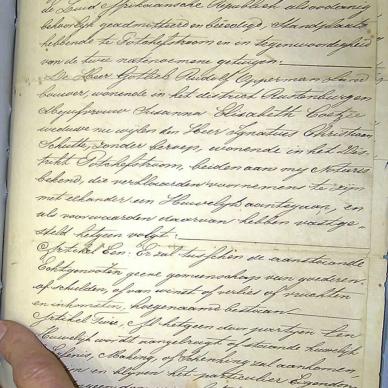 de Zuid Afrikaansche Republiek als zoodanig
behoorlijk geadmitteerd en beëedigd, Standplaats
hebbende te Potchefstroom en in tegenwoordigheid
van de twee natenoemene getuigen.
De Heer Gotlieb Rudolf Opperman Land
bouwer, wonende in het district Rustenburg en
Mejufvrouw Susanna Elisabeth Coetzee
weduwe nu wijlen den Heer Ignatius Christiaan
Schutte, zonder beroep, wonende in het Dis
trikt Potchefstroom, beiden aan mij Notaris
bekend, die verklaarden voornemens te zijn
met elkander een Huwelijk aantegaan, en
als voorwaarden daarvan hebben vastge-
steld hetgeen volgt:
Artikel Een: Er zal tusschen de aanstaande
Echtgenooten geene gemeenschap van goederen
of schulden, of van winst of verlies of vruchten
en inkomsten, hoegenaamd bestaan.
Artikel Twee, Al hetgeen door partijen ten
Huwelijk wordt aangebragt of staande huwelijk
Making, of Schenking zal aankomen
en blijven het particulier Eigendom